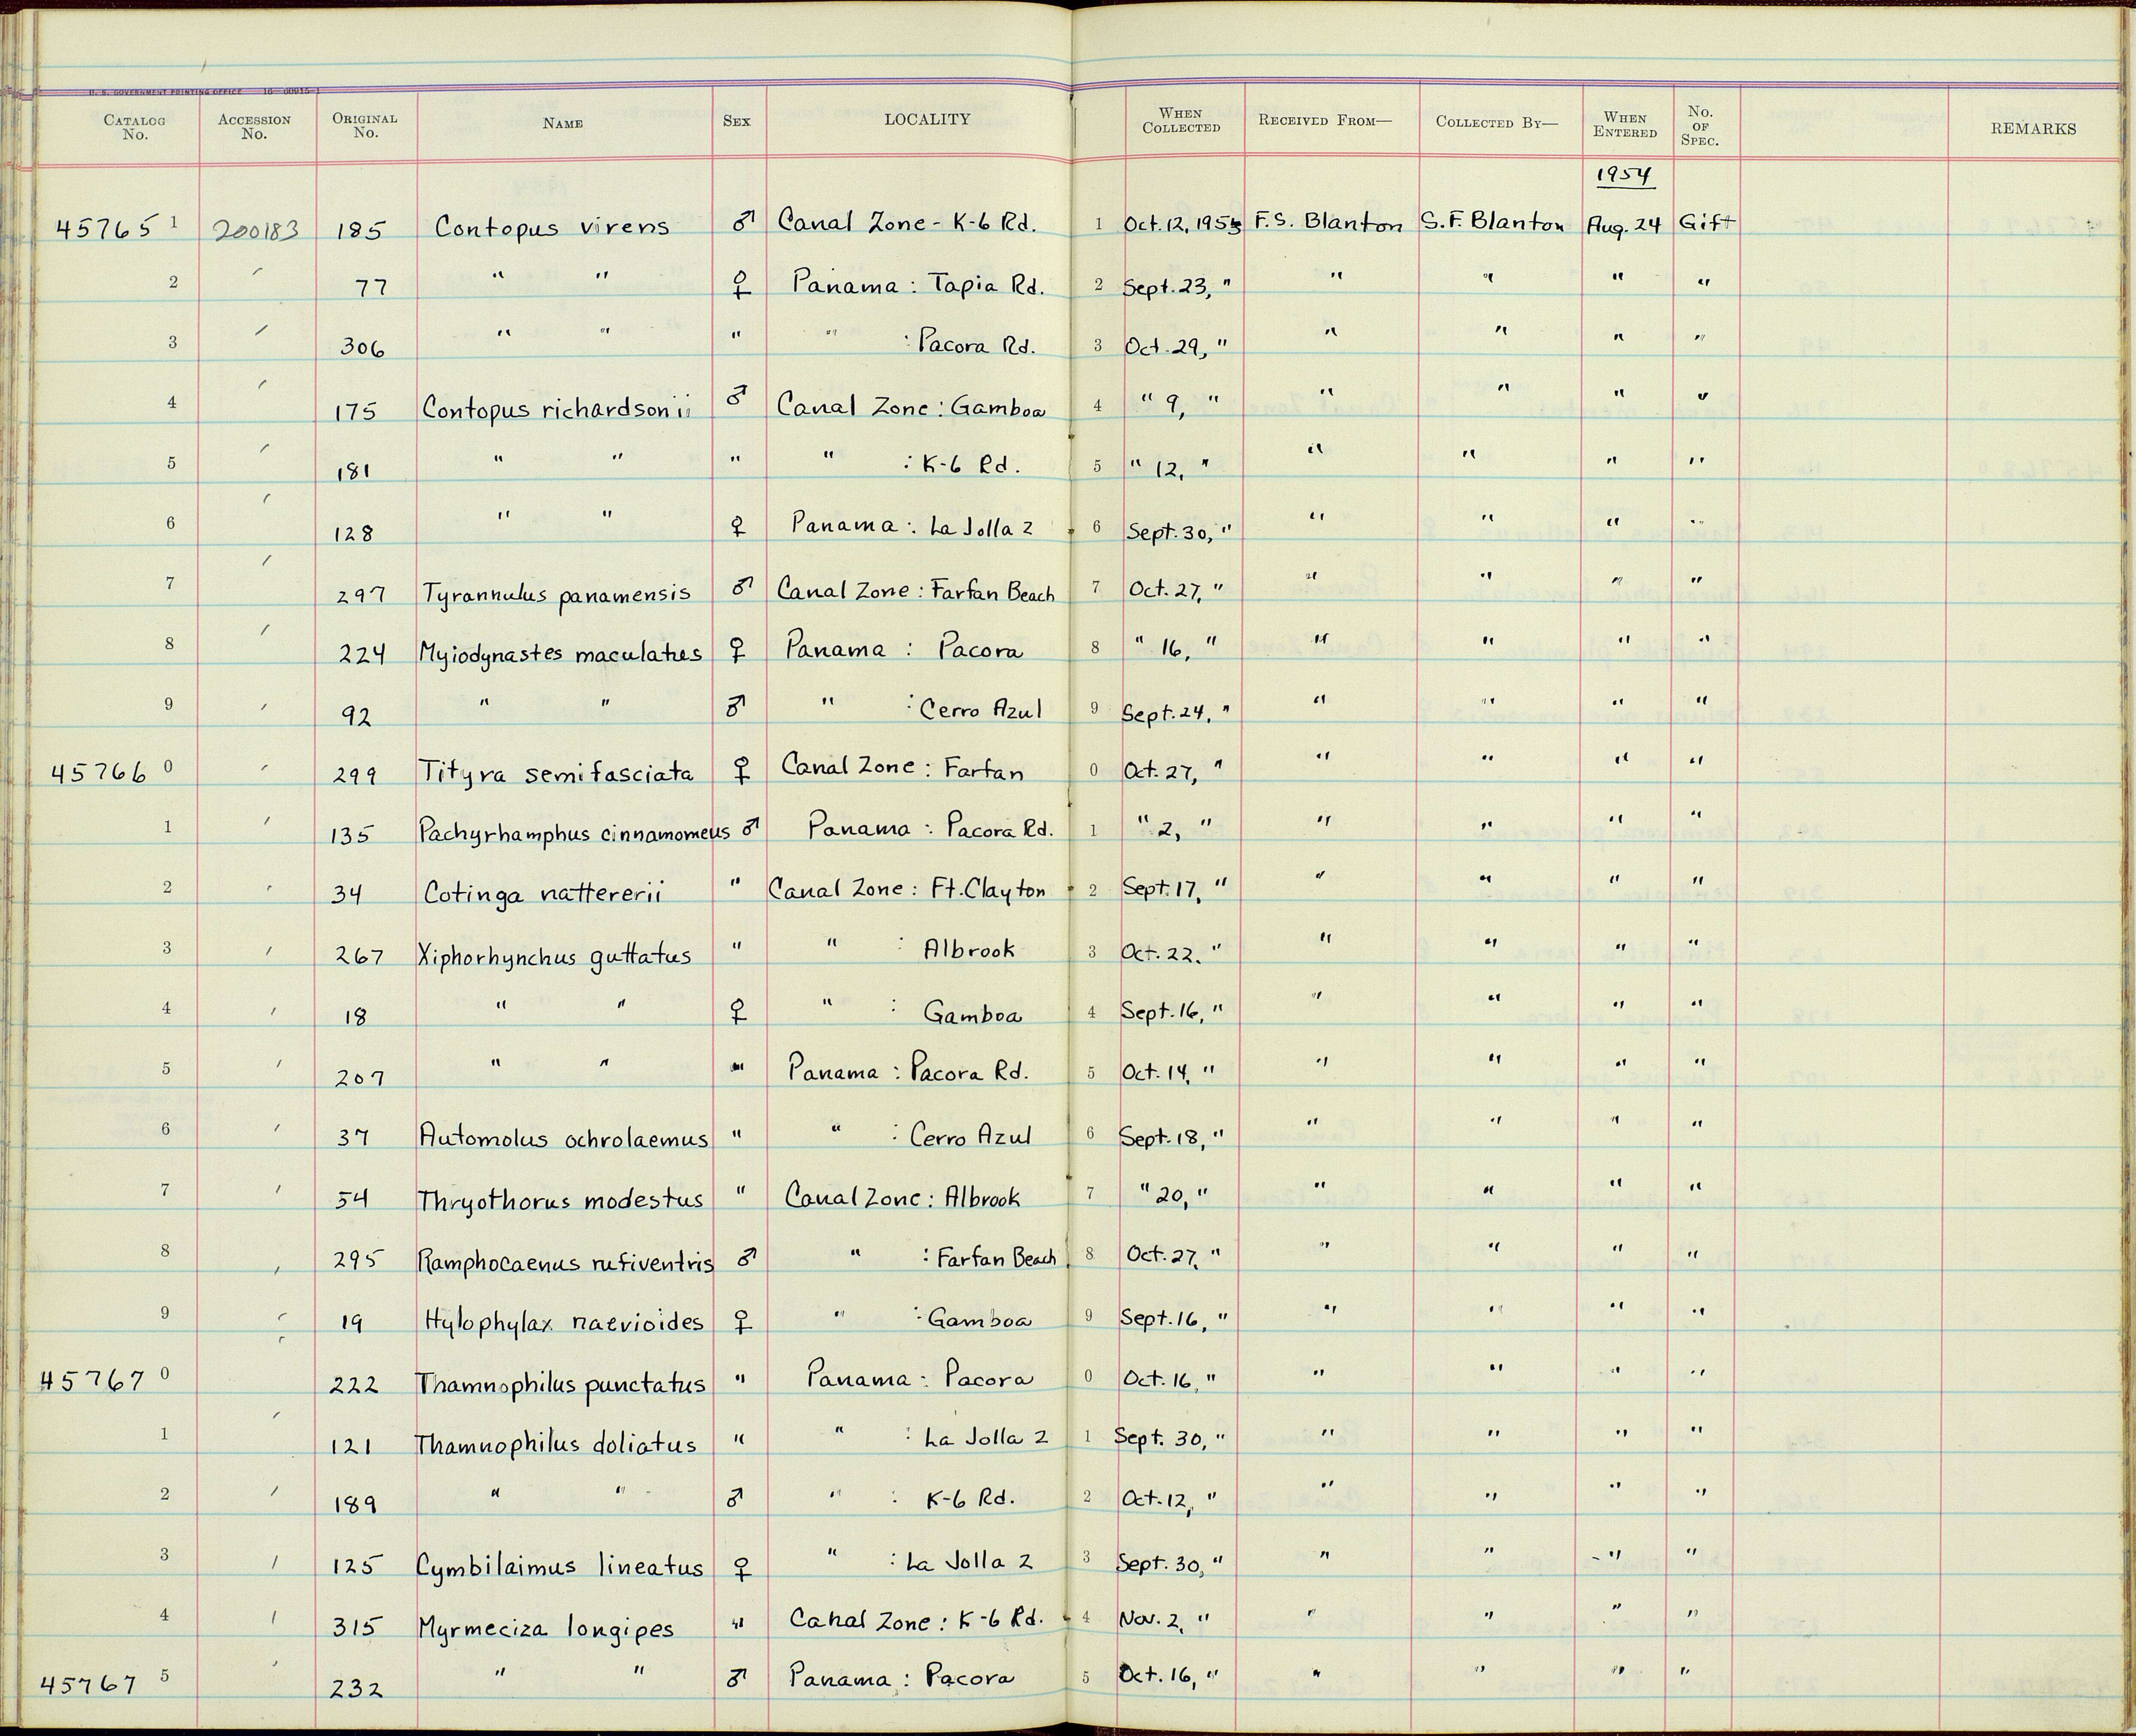 U. S. GOVERNMENT PRINTING OFFICE 16—60915-1
CATALOG No. ACCESSION No. ORIGINAL No. NAME SEX LOCALITY WHEN COLLECTED RECEIVED FROM— COLLECTED BY— WHEN ENTERED No. OF SPEC. REMARKS
1954
45765 1 200183 185 Contopus virens ♂ Canal Zone - K-6 Rd. 1 Oct. 12, 1953 F.S. Blanton S.F. Blanton Aug. 24 Gift
2 ′ 77 " " ♀ Panama : Tapia Rd. 2 Sept. 23, " " " " "
3 ′ 306 " " " " : Pacora Rd. 3 Oct. 29, " " " " "
4 ′ 175 Contopus richardsonii ♂ Canal Zone : Gamboa 4 " 9, " " " " "
5 ′ 181 " " " " : K-6 Rd. 5 " 12, " " " " "
6 ′ 128 " " ♀ Panama : La Jolla 2 6 Sept. 30, " " " " "
7 ′ 297 Tyrannulus panamensis ♂ Canal Zone : Farfan Beach 7 Oct. 27, " " " " "
8 ′ 224 Myiodynastes maculatus ♀ Panama : Pacora 8 " 16, " " " " "
9 ′ 92 " " ♂ " : Cerro Azul 9 Sept. 24, " " " " "
45766 0 ′ 299 Tityra semifasciata ♀ Canal Zone : Farfan 0 Oct. 27, " " " " "
1 ′ 135 Pachyrhamphus cinnamomeus ♂ Panama : Pacora Rd. 1 " 2, " " " " "
2 ′ 34 Cotinga nattererii " Canal Zone : Ft. Clayton 2 Sept. 17, " " " " "
3 ′ 267 Xiphorhynchus guttatus " " : Albrook 3 Oct. 22. " " " " "
4 ′ 18 " " ♀ " : Gamboa 4 Sept. 16, " " " " "
5 ′ 207 " " " Panama : Pacora Rd. 5 Oct. 14, " " " " "
6 ′ 37 Automolus ochrolaemus " " : Cerro Azul 6 Sept. 18, " " " " "
7 ′ 54 Thryothorus modestus " Canal Zone : Albrook 7 " 20, " " " " "
8 ′ 295 Ramphocaenus rufiventris ♂ " : Farfan Beach 8 Oct. 27, " " " " "
9 ′ 19 Hylophylax naevioides ♀ " : Gamboa 9 Sept. 16, " " " " "
45767 0 ′ 222 Thamnophilus punctatus " Panama : Pacora 0 Oct. 16, " " " " "
1 ′ 121 Thamnophilus doliatus " " : La Jolla 2 1 Sept. 30, " " " " "
2 ′ 189 " " ♂ " : K-6 Rd. 2 Oct. 12, " " " " "
3 ′ 125 Cymbilaimus lineatus ♀ " : La Jolla 2 3 Sept. 30, " " " " "
4 ′ 315 Myrmeciza longipes " Canal Zone : K-6 Rd. 4 Nov. 2, " " " " "
45767 5 ′ 232 " " ♂ Panama : Pacora 5 Oct. 16, " " " " "